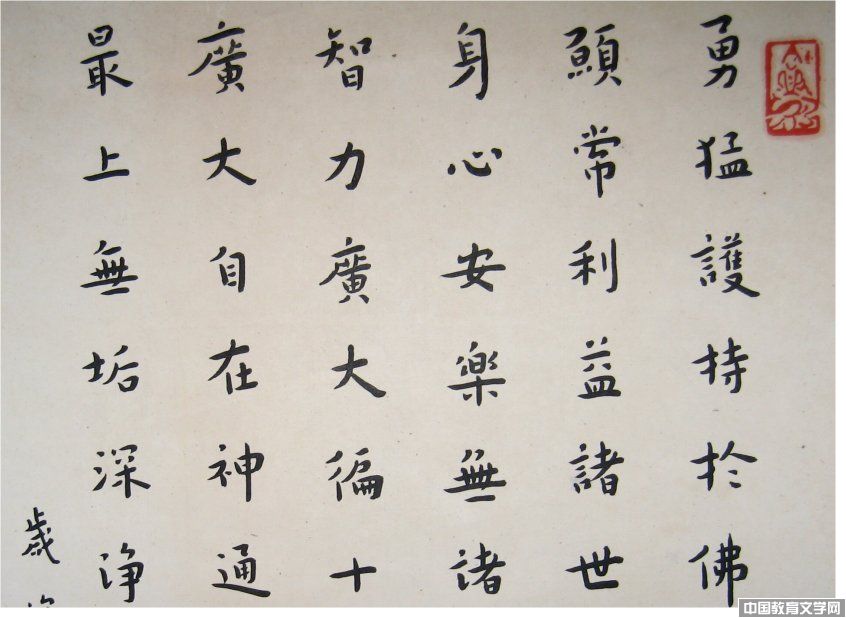 勇猛護持於佛
願常利益諸世
身心安樂無諸
智力廣大徧十
廣大自在神通
最上無垢深浄
歲
中国教育文学网